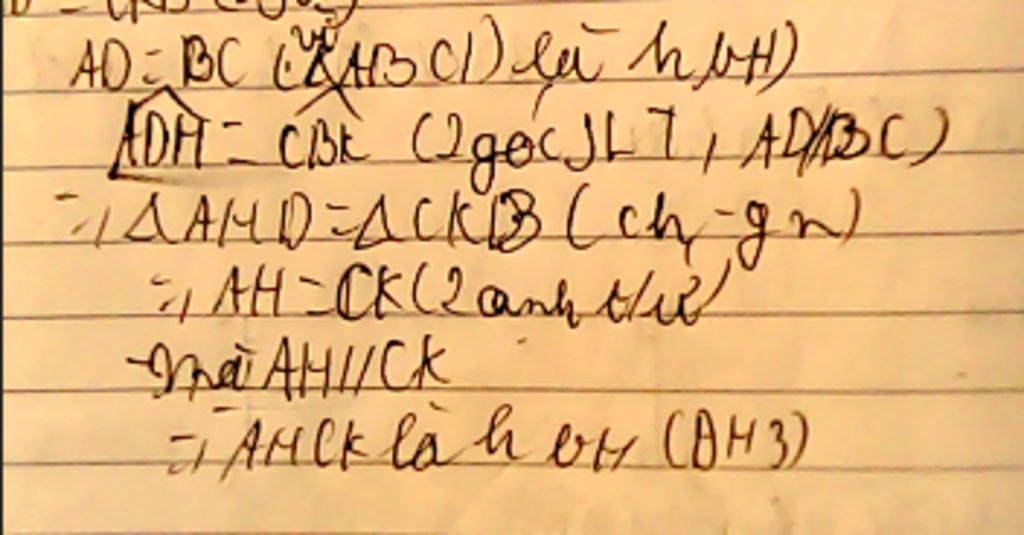 AD = BC (vì ABCD là hbH)
ADH = CBK (2 góc SLT, AD//BC)
=> Δ AHD = Δ CKB (ch - gn)
=> AH = CK (2 cạnh t/ư)
mà AH // CK
=> AHCK là h bH (DH3)